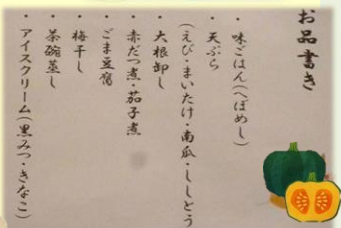 お品書き
・味ごはん(へぼめし)
・天ぷら
(えび・まいたけ・南瓜・ししとう)
・大根卸し
・赤だつ煮・茄子煮
・ごま豆腐
・梅干し
・茶碗蒸し
・アイスクリーム(黒みつ・きなこ)